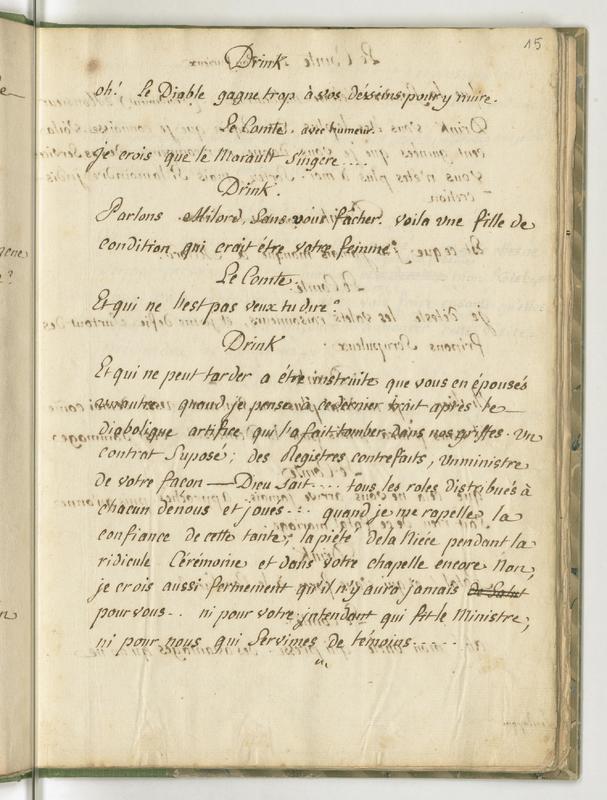 15
Drink.
oh! Le Diable gagne trop à vos desseins pour y nuire.
Le Comte. avec humeur.
je crois que le Marault s'ingere....
Drink.
Parlons Milord, sans vous fâcher. voila une fille de
condition qui croit être votre femme.
Le Comte.
Et qui ne l'est pas veux tu dire?
Drink
Et qui ne peut tarder a être instruite que vous en épousés
une autre. quand je pense à ce dernier trait après le
diabolique artifice qui l'a fait tomber dans nos griffes. un
contrat suposé; des Registres contrefaits, un ministre
de votre facon — Dieu sait.... tous les roles distribués à
chacun de nous et joués... quand je me rapelle la
confiance de cette tante, la piété de la Niéce pendant la
ridicule Cérémonie et dans votre chapelle encore Non,
je crois aussi fermement qu'il n'y aura jamais de Salut
pour vous.. ni pour votre intendant qui fit le Ministre,
ni pour nous qui servimes de témoins.....